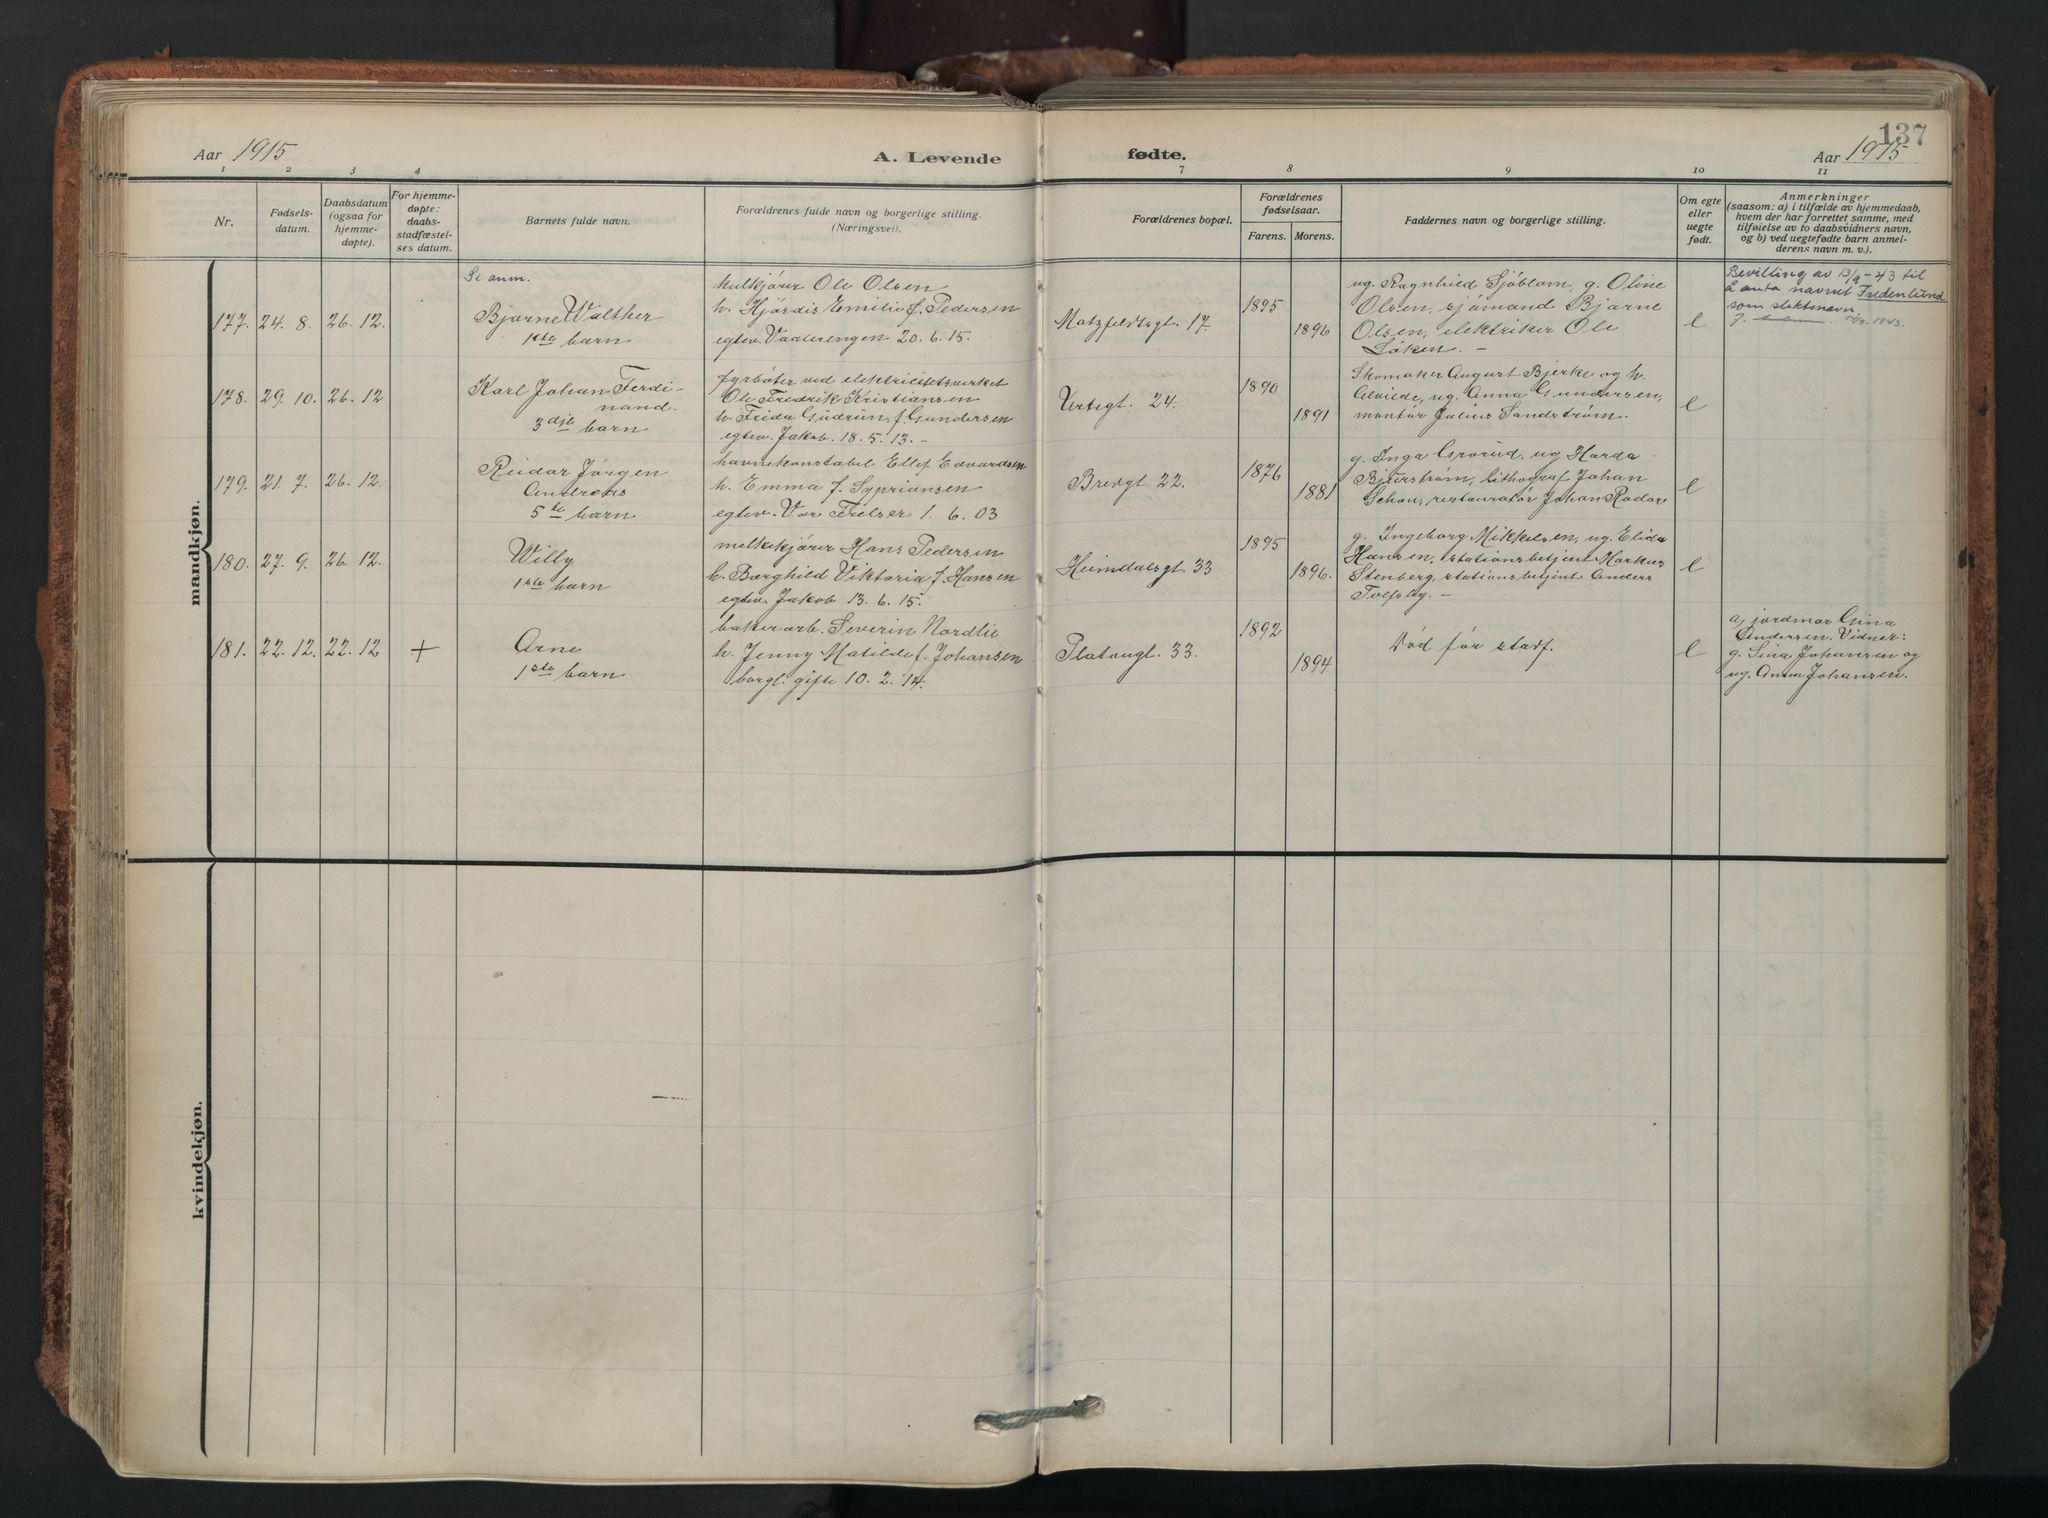 137
Aar 1915
A. Levende
fødte.
Aar 1915
1 2 3 4 7 8 9 10 11
Nr.
Fødsels-
datum.
Daabsdatum
(ogsaa for
hjemme-
døpte).
For hjemme-
døpte:
daabs-
stadfæstel-
ses datum.
Barnets fulde navn.
Forældrenes fulde navn og borgerlige stilling.
(Næringsvei).
Forældrenes bopæl.
Forældrenes
fødselsaar.
Farens. Morens.
Faddernes navn og borgerlige stilling.
Om egte
eller
uegte
født.
Anmerkninger
(saasom: a) i tilfælde av hjemmedaab,
hvem der har forrettet samme, med
tilføielse av to daabsvidners navn,
og b) ved uegtefødte barn anmel-
derens navn m. v.).
mandkjøn.
177. 24. 8. 26. 12.
Se anm.
Bjarne Walther
1ste barn
kulkjører Ole Olsen
h. Hjørdis Emilie f. Pedersen
egtev. Vaalerengen 20. 6. 15.
Motzfeldtsgt. 17.
1895
1896
ug. Ragnhild Sjøblom, g. Oline
Olsen, sjømand Bjarne
Olsen, elektriker Ole
Løken. –
e
Bevilling av 13/9-43 til
å anta navnet Fredenlund
som slektsnavn.
1943.
178. 29. 10. 26. 12
Karl Johan Ferdi-
nand.
3dje barn
fyrbøter ved elektricitetsverket
Ole Fredrik Kristiansen
h. Frida Gudrun f. Gundersen
egtev. Jakob. 18. 5. 13. –
Urtegt. 24.
1890
1891
Skomaker August Bjerke og h.
Alvilde, ug. Anna Gundersen,
montør Julius Sandstrøm.
e
179. 21. 7. 26. 12.
Reidar Jørgen
Andreas
5te barn
havnekonstabel Ellef Edvardsen
h. Emma f. Syprians​en
egtev. Vor Frelser 1. 6. 03
Brevgt. 22.
1876
1881
g. Inga Grorud, ug. Harda
Bjerstrøm, lithograf Johan
Schou, restauratør Johan Rodor
e
180. 27. 9. 26. 12.
Willy
1ste barn
melkekjører Hans Pedersen
h. Borghild Viktoria f. Hansen
egtev. Jakob 13. 6. 15.
Heimdalsgt. 33
1895
1896.
g. Ingeborg Mikkelsen, ug. Elida
Hansen, stationsbetjent Markus
Stenberg, stationsbetjent Anders
Tvefsby. –
e
181. 22. 12. 22. 12 +
Arne
1ste barn
bakerarb. Severin Nordlie
h. Jenny Matilde f. Johansen
borgl. gifte 10. 2. 14.
Platougt. 33.
1892
1894
Død før stadf.
e
a) jordmor Gina
Andersen. Vidner:
g. Lina Johansen og
ug. Anna Johansen.
kvindekjøn.